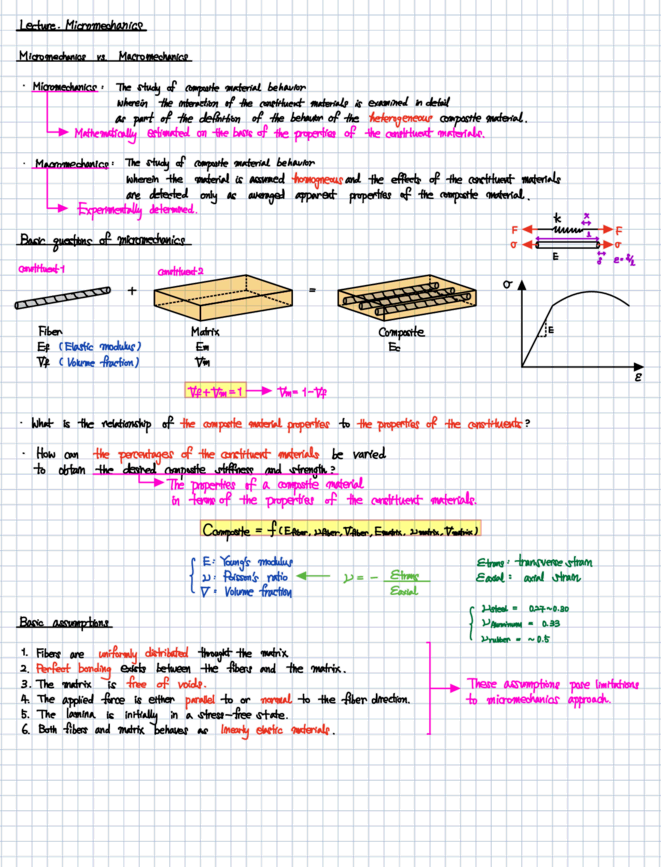 Lecture. Micromechanics
Micromechanics vs. Macromechanics
· Micromechanics: The study of composite material behavior
wherein the interaction of the constituent materials is examined in detail
as part of the definition of the behavior of the heterogeneous composite material.
Mathematically estimated on the basis of the properties of the constituent materials.
· Macromechanics: The study of composite material behavior
wherein the material is assumed homogneous and the effects of the constituent materials
are detected only as averaged apparent properties of the composite material.
Experimentally determined.
k x
F F
l
σ σ
E δ ε=δ/l
Basic questions of micromechanics
constituent-1 constituent-2
+ =
σ
E
ε
Fiber Matrix Composite
Ef (Elastic modulus) Em Ec
Vf (Volume fraction) Vm
Vf + Vm = 1 → Vm = 1-Vf
· What is the relationship of the composite material properties to the properties of the constituents?
· How can the percentages of the constituent materials be varied
to obtain the desired composite stiffness and strength?
The properties of a composite material
in terms of the properties of the constituent materials.
Composite = f (Efiber, νfiber, Vfiber, Ematrix, νmatrix, Vmatrix)
E: Young's modulus
ν: Poisson's ratio ← ν = - εtrans / εaxial
V: Volume fraction
εtrans: transverse strain
εaxial: axial strain
νsteel = 0.27~0.30
νAluminum = 0.33
νrubber = ~0.5
Basic assumptions
1. Fibers are uniformly distributed throught the matrix
2. Perfect bonding exists between the fibers and the matrix.
3. The matrix is free of voids.
4. The applied force is either parallel to or normal to the fiber direction.
5. The lamina is initially in a stress-free state.
6. Both fibers and matrix behaves as linearly elastic materials.
These assumptions pose limitations
to micromechanics approach.